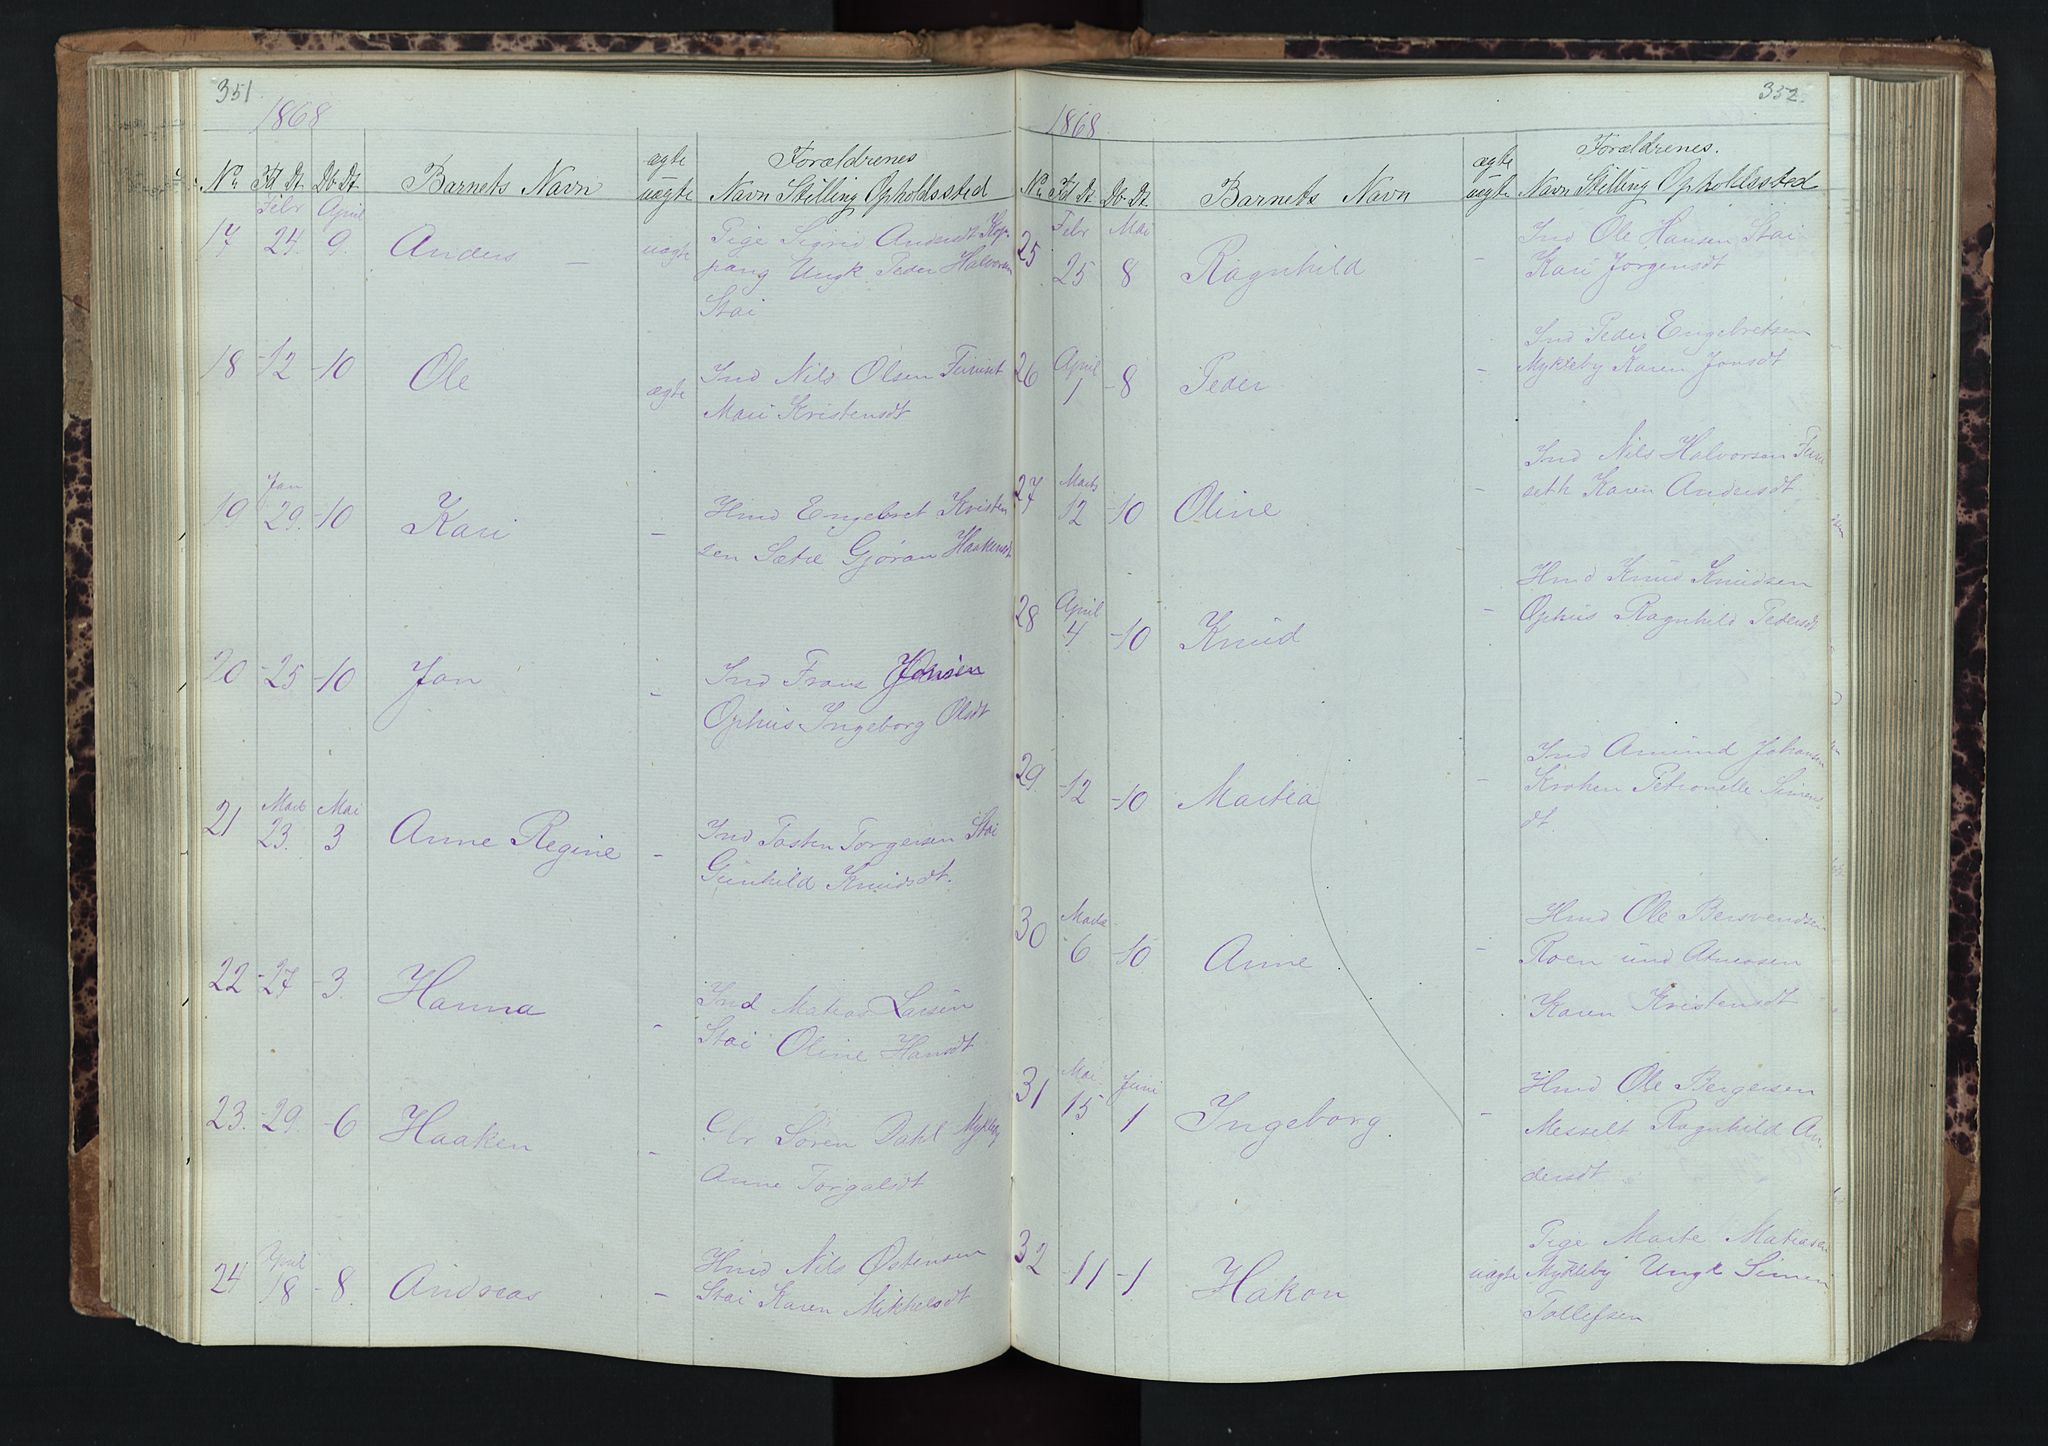 351
1868
No Fd Dt. Db Dt. Barnets Navn ægte uægte Forældrenes Navn Stilling Opholdssted
Febr April
17 24. 9. Anders – uægte Pige Sigrid Andersdt Kop-
pang Ungk Peder Halvorsen
Stai
18 -12 -10 Ole ægte Ind Nils Olsen Furuset
Mari Kristensdt
Jan
19 29. -10 Kari – Hmd Engebret Kristen
sen Sætre Gjøran Haakensdt
20 -25 -10 Jon – Ind Frans Jonsen
Ophus Ingeborg Olsdt
Marts Mai
21 23. 3 Anne Regine – Ind Tosten Torgersen Stai
Gunhild Knudsdt.
22 -27 -3. Hanna – Ind Matias Larsen
Stai Oline Hansdt
23. -29. -6 Haaken – Søren Dahl Mykleby
Anne Torgalsdt
April
24 18 -8. Andreas – Hmd Nils Østensen
Stai Karen Mikkelsdt
352.
1868
No Fd Dt. Db Dt. Barnets Navn ægte uægte Forældrenes. Navn Stilling Opholdssted
Febr Mai
25 25 8 Ragnhild – Ind Ole Hansen Stai
Kari Jorgensdt
April
26 1 -8 Peder – Ind Peder Engebretsen
Mykleby Karen Jonsdt
Marts
27 12 -10 Oline – Ind Nils Halvorsen Furu
seth Karen Andersdt
April
28 4 -10 Knud – Hmd Knud Knudsen
Ophus Ragnhild Pedersdt
29. -12 -10 Martea – Ind Amund Johansen
Kroken Petronelle Simens
dt.
Marts
30 6 -10 Anne – Hmd Ole Bersvendsen
Roen und Atneosen
Karen Kristensdt
Mai Juni
31 15 1 Ingeborg. – Hmd Ole Bergersen
Messelt Ragnhild An-
dersdt.
32 -11 -1 Hakon uægte Pige Marte Matiasen
Mykleby Ungk Simen
Tollefsen